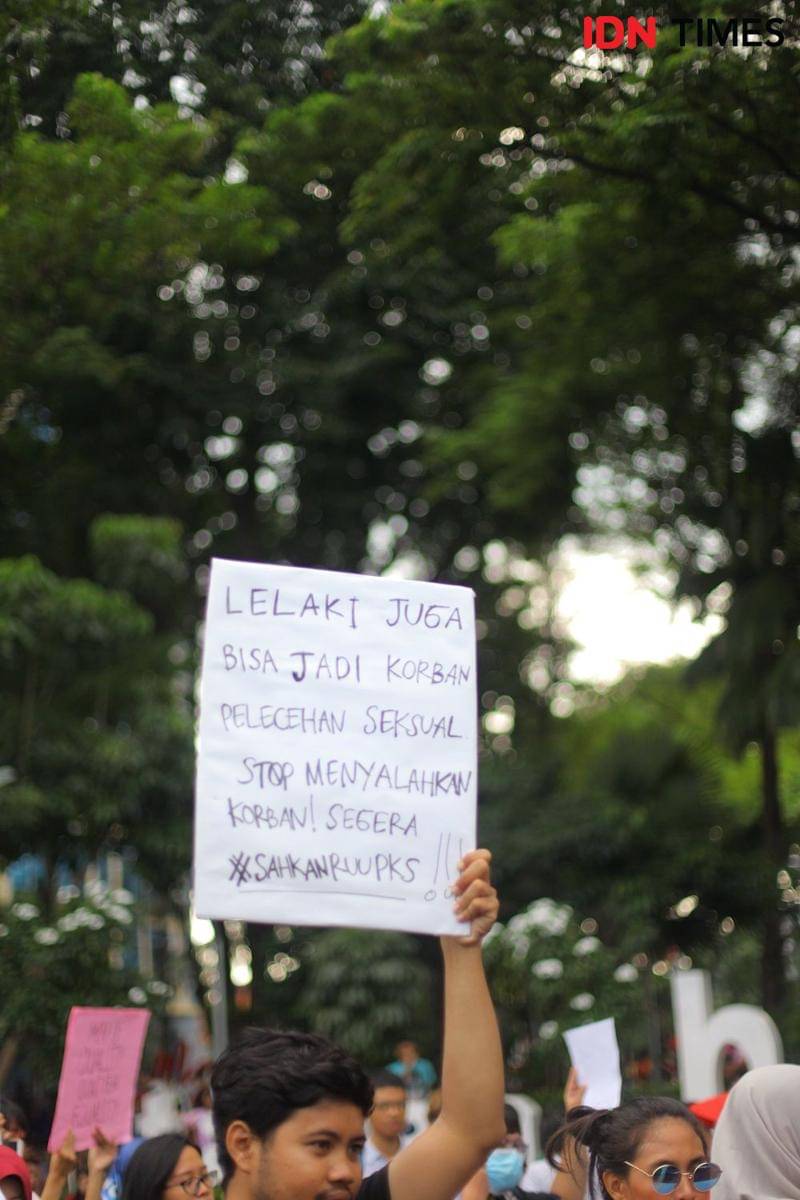 IDN TIMES
LELAKI JUGA
BISA JADI KORBAN
PELECEHAN SEKSUAL.
STOP MENYALAHKAN
KORBAN! SEGERA
#SAHKANRUUPKS !!!
h